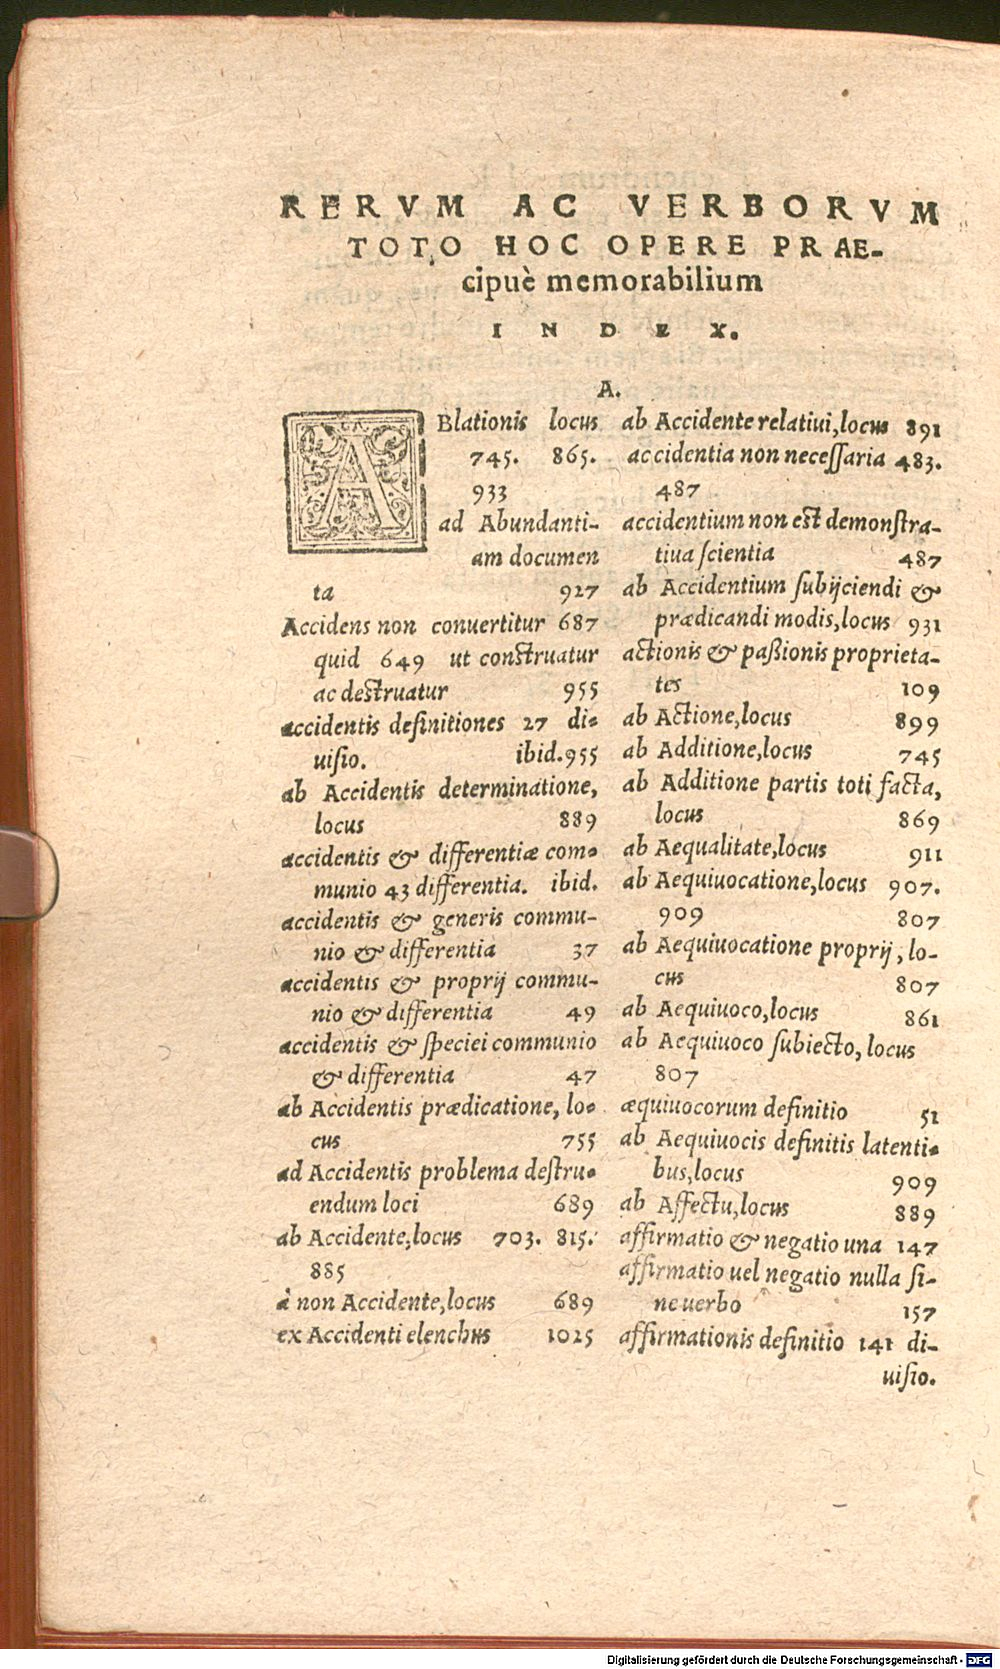 RERVM AC VERBORVM
TOTO HOC OPERE PRAE-
cipuè memorabilium
INDEX.
A.
ABlationis locus
745. 865.
933
ad Abundanti-
am documen
ta 927
Accidens non conuertitur 687
quid 649 ut construatur
ac destruatur 955
accidentis definitiones 27 di-
uisio. ibid. 955
ab Accidentis determinatione,
locus 889
accidentis & differentiæ com-
munio 43 differentia. ibid.
accidentis & generis commu-
nio & differentia 37
accidentis & proprij commu-
nio & differentia 49
accidentis & speciei communio
& differentia 47
ab Accidentis prædicatione, lo-
cus 755
ad Accidentis problema destru-
endum loci 689
ab Accidente, locus 703. 815.
885
à non Accidente, locus 689
ex Accidenti elenchus 1025
ab Accidente relatiui, locus 891
accidentia non necessaria 483.
487
accidentium non est demonstra-
tiua scientia 487
ab Accidentium subijciendi &
prædicandi modis, locus 931
actionis & paßionis proprieta-
tes 109
ab Actione, locus 899
ab Additione, locus 745
ab Additione partis toti facta,
locus 869
ab Aequalitate, locus 911
ab Aequiuocatione, locus 907.
909 807
ab Aequiuocatione proprij, lo-
cus 807
ab Aequiuoco, locus 861
ab Aequiuoco subiecto, locus
807
æquiuocorum definitio 51
ab Aequiuocis definitis latenti-
bus, locus 909
ab Affectu, locus 889
affirmatio & negatio una 147
affirmatio uel negatio nulla si-
ne uerbo 157
affirmationis definitio 141 di-
uisio.
Digitalisierung gefördert durch die Deutsche Forschungsgemeinschaft - DFG